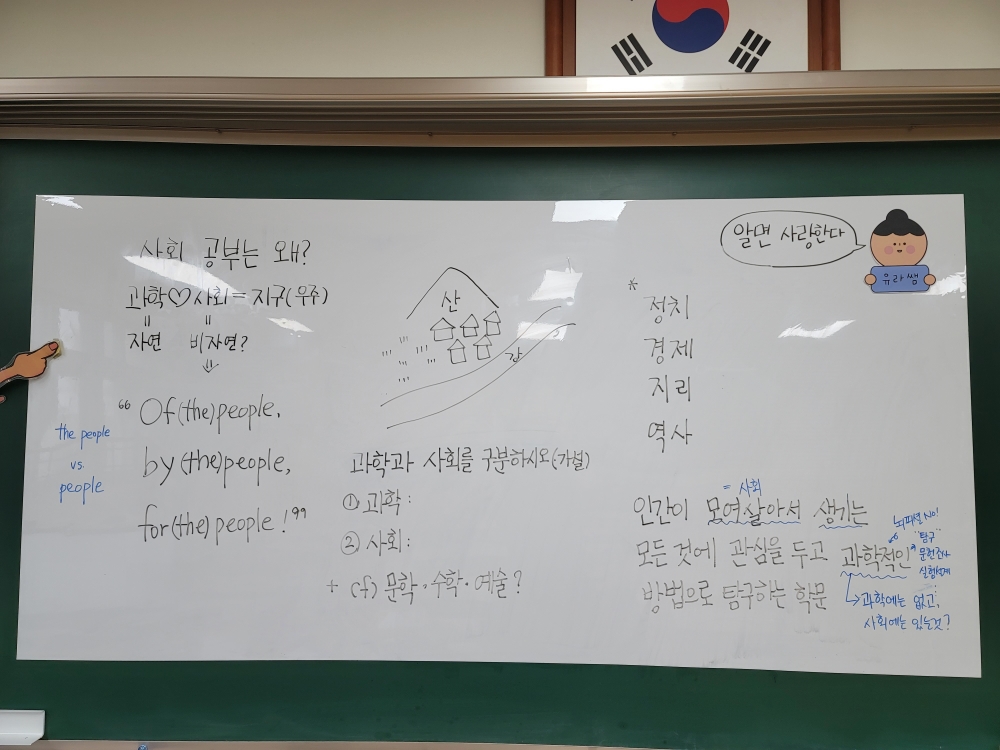 사회 공부는 왜?
과학♡사회=지구(우주)
=
=
자연 비자연?
"Of(the)people,
by(the)people,
for(the)people!"
the people
vs.
people
산
강
과학과 사회를 구분하시오(가설)
① 과학:
② 사회:
+ cf) 문학·수학·예술?
알면 사랑한다
유라쌤
*
정치
경제
지리
역사
= 사회
인간이 모여살아서 생기는
모든 것에 관심을 두고 과학적인*
방법으로 탐구하는 학문
뇌피셜 No!
"탐구"
문헌조사
실험설계
→과학에는 없고,
사회에는 있는것?